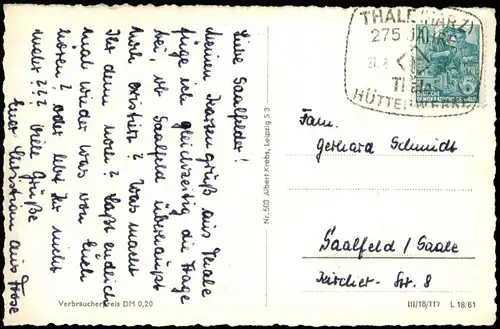 Liebe Saalfelder!
Meinen Kartengruß aus Thale
füge ich gleichzeitig die Frage
bei, ob Saalfeld überhaupt
noch existiert? Was macht
Ihr denn noch? Laßt endlich
mal wieder was von Euch
hören? oder lebt Ihr nicht
mehr??? Viele Grüße
Euer Christian aus Frose
Verbraucherpreis DM 0,20
Nr. 503 Albert Krebs, Leipzig S 3
THALE (HARZ)
275 JAHRE
21.8
Thale
HÜTTEN
6
Fam.
Gerhard Schmidt
Saalfeld / Saale
Kircher- Str. 8
III/18/117 L 18/61